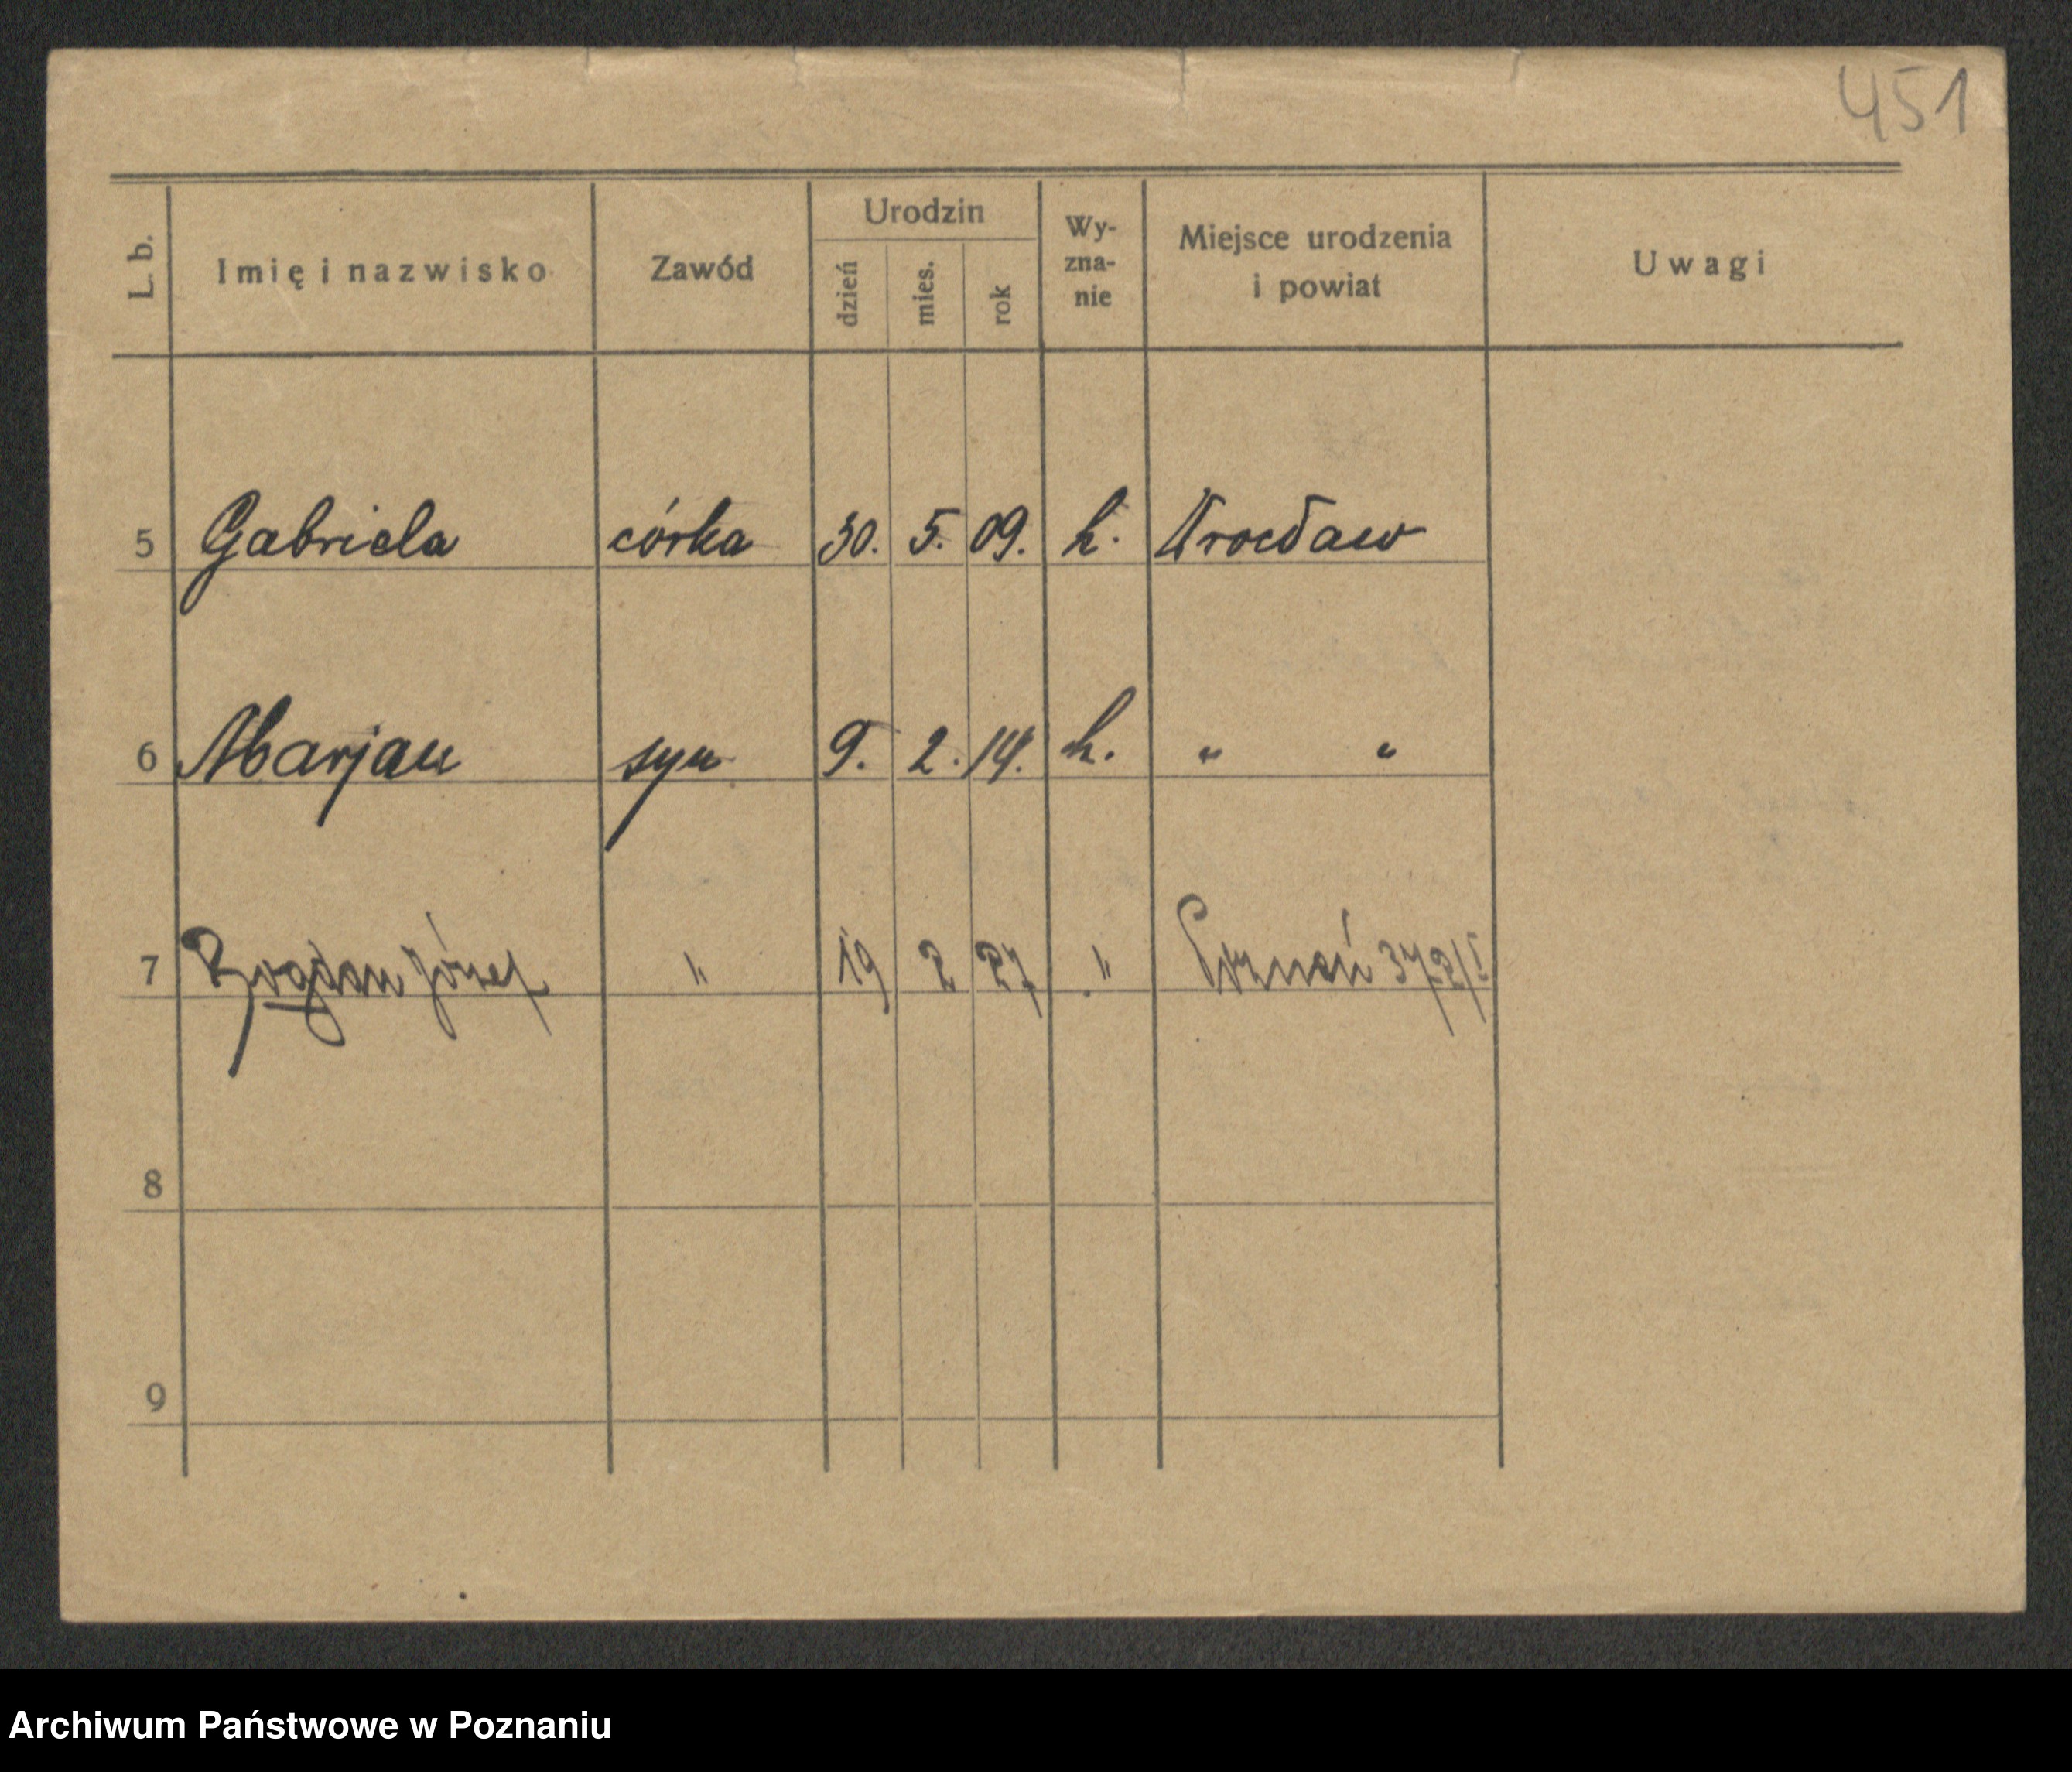 451
L. b. Imię i nazwisko Zawód Urodzin dzień mies. rok Wy-zna-nie Miejsce urodzenia i powiat Uwagi
5 Gabriela córka 30. 5. 09. k. Wrocław
6 Marjan syn 9. 2. 14. k. " "
7 Bogdan Józef " 19 2 27 " Poznań 372/I
8
9
Archiwum Państwowe w Poznaniu